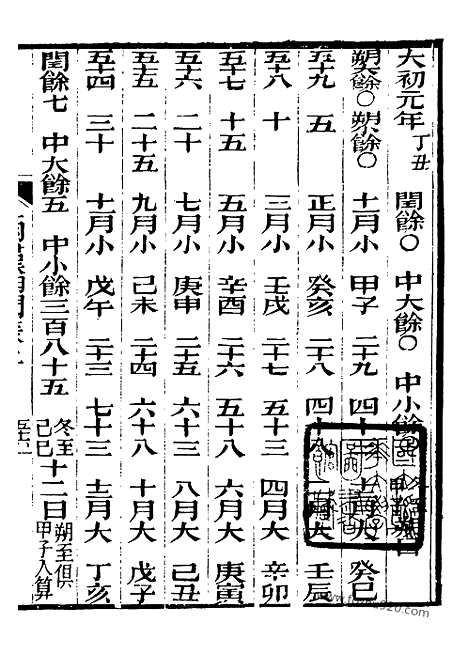 大初元年 丁丑 閏餘〇 中大餘〇 中小餘
朔大餘〇 朔小餘〇 十一月小 甲子 二十九 四十 大 癸巳
五十九 五 正月小 癸亥 二十八 四十 二月大 壬辰
五十八 十 三月小 壬戌 二十七 五十三 四月大 辛卯
五十七 十五 五月小 辛酉 二十六 五十八 六月大 庚寅
五十六 二十 七月小 庚申 二十五 六十三 八月大 己丑
五十五 二十五 九月小 己未 二十四 六十八 十月大 戊子
五十四 三十 十一月小 戊午 二十三 七十三 十二月大 丁亥
閏餘七 中大餘五 中小餘三百八十五 冬至己巳 十二日 朔至俱甲子入算